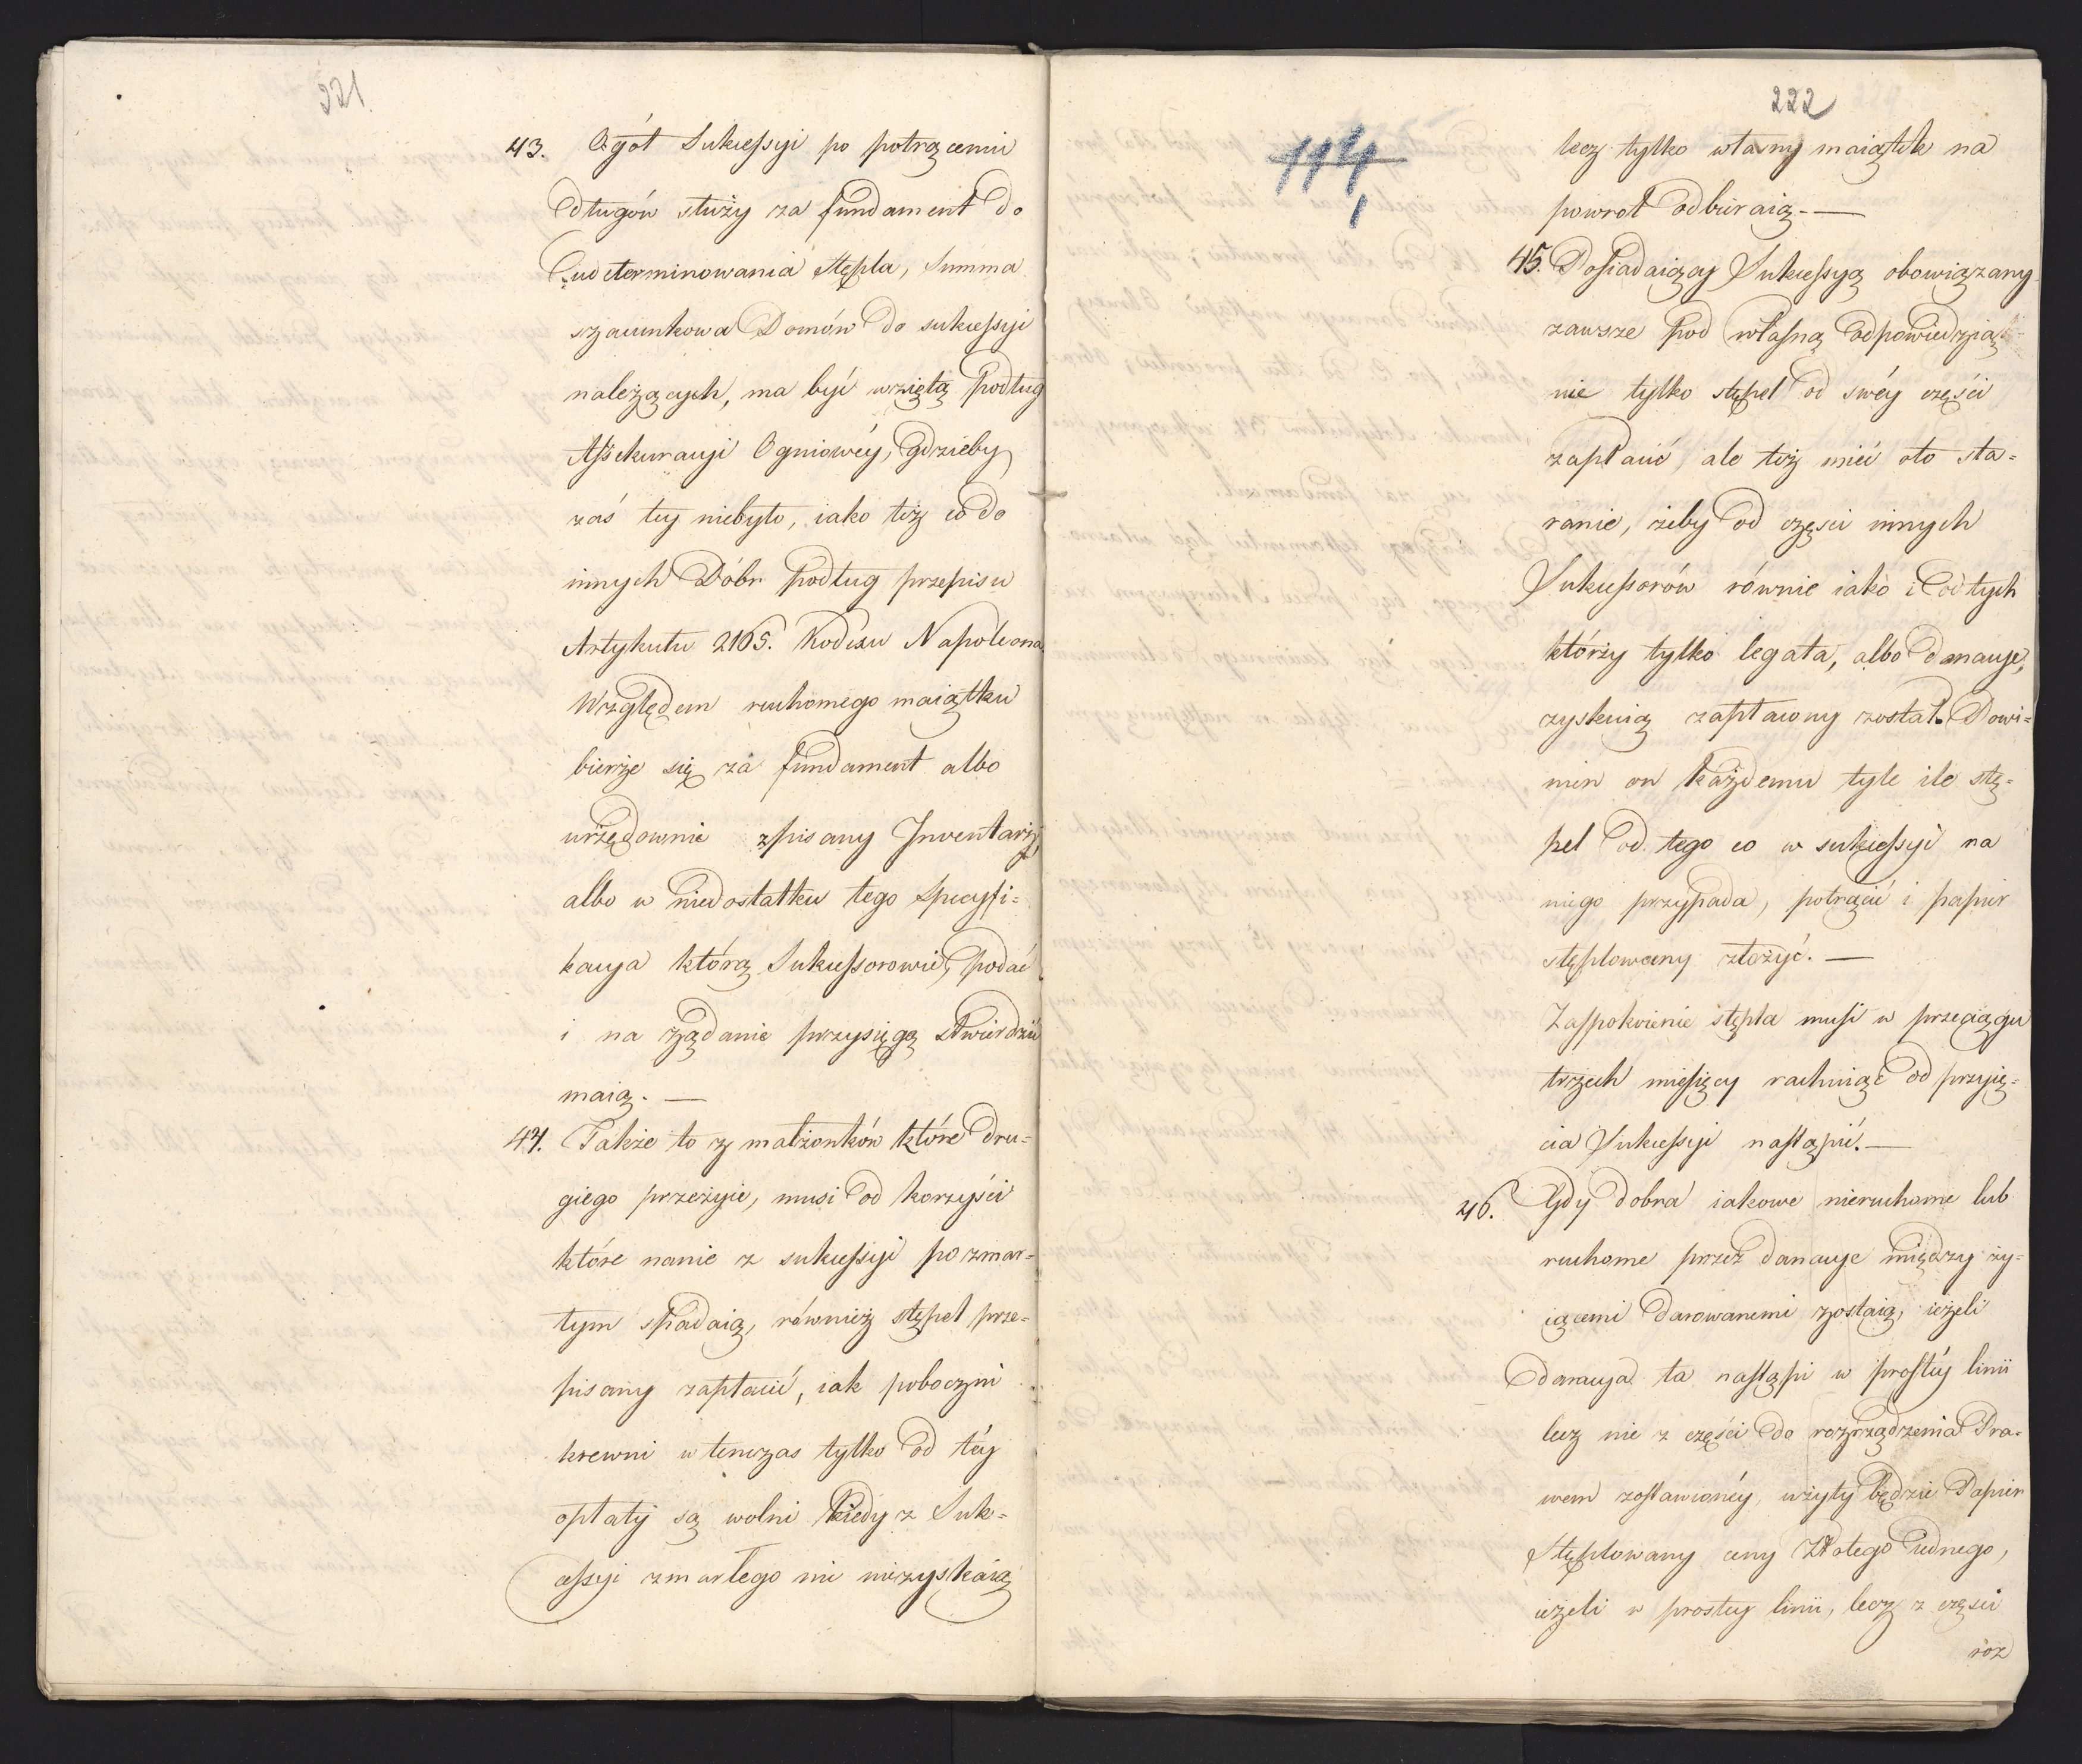 221.
43. Ogół Sukcessyi po potrąceniu
długów służy za fundament do
zudeterminowania Stępla, Summa
szacunkowa Domów do sukcessyi
należących, ma być wziętą podług
Assekuracyi Ogniowéy, gdzieby
zaś tey niebyło, iako też co do
innych Dóbr podług przepisu
Artykułu 2165. Kodexu Napoleona.
Względem ruchomego maiątku
bierze się za fundament albo
urzędownie zpisany Inventarz,
albo w niedostatku tego specyfi=
kacya którą Sukcessorowie, podać
i na żądanie przysięgą stwierdzić
maią. —
44. Także to z małżonków które dru=
giego przeżyie, musi od korzyści
które nanie z sukcessyi po zmar=
tym spadaią, również stępel prze=
pisany zapłacić, iak poboczni
krewni w tenczas tylko od téy
opłaty są wolni kiedy z Suk=
cessyi zmarłego nic niezyskaią
222
114
lecz tylko własny maiątek na
powrót odbieraią. —
45. Posiadaiący Sukcessyą obowiązany
zawsze pod własną odpowiedzią
nie tylko stępel od swéy części
zapłacić, ale też mieć oto sta=
ranie, żeby od części innych
Sukcessorów równie iako i od tych
którzy tylko legata, albo donacye,
zyskuią zapłacony został. Powi=
nien on każdemu tyle ile stę=
pel od tego co w sukcessyi na
niego przypada, potrącić i papier
stęplowany złożyć. —
Zaspokoienie stępla musi w przeciągu
trzech miesięcy rachuiąc od przyię=
cia Sukcessyi nastąpić. —
46. Gdy dobra iakowe nieruchome lub
ruchome przez donacye między ży=
iącemi darowanemi zostaią, ieżeli
donacya ta nastąpi w prostéy linii
lecz nie z części do rozrządzenia Pra=
wem zostawionéy, użyty będzie Papier
Stęplowany ceny Złotego iednego,
ieżeli w prostey linii, lecz z części
roz